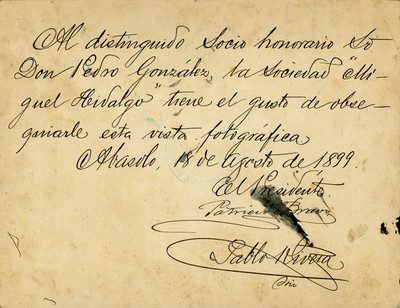 Al distinguido Socio honorario Sr
Don Pedro González, la Sociedad "Mi-
guel Hidalgo" tiene el gusto de obse-
quiarle esta vista fotográfica
Abasolo, 18 de agosto de 1899.
El Presidente.
Patricio Bravo
Pablo Rivera
Srio